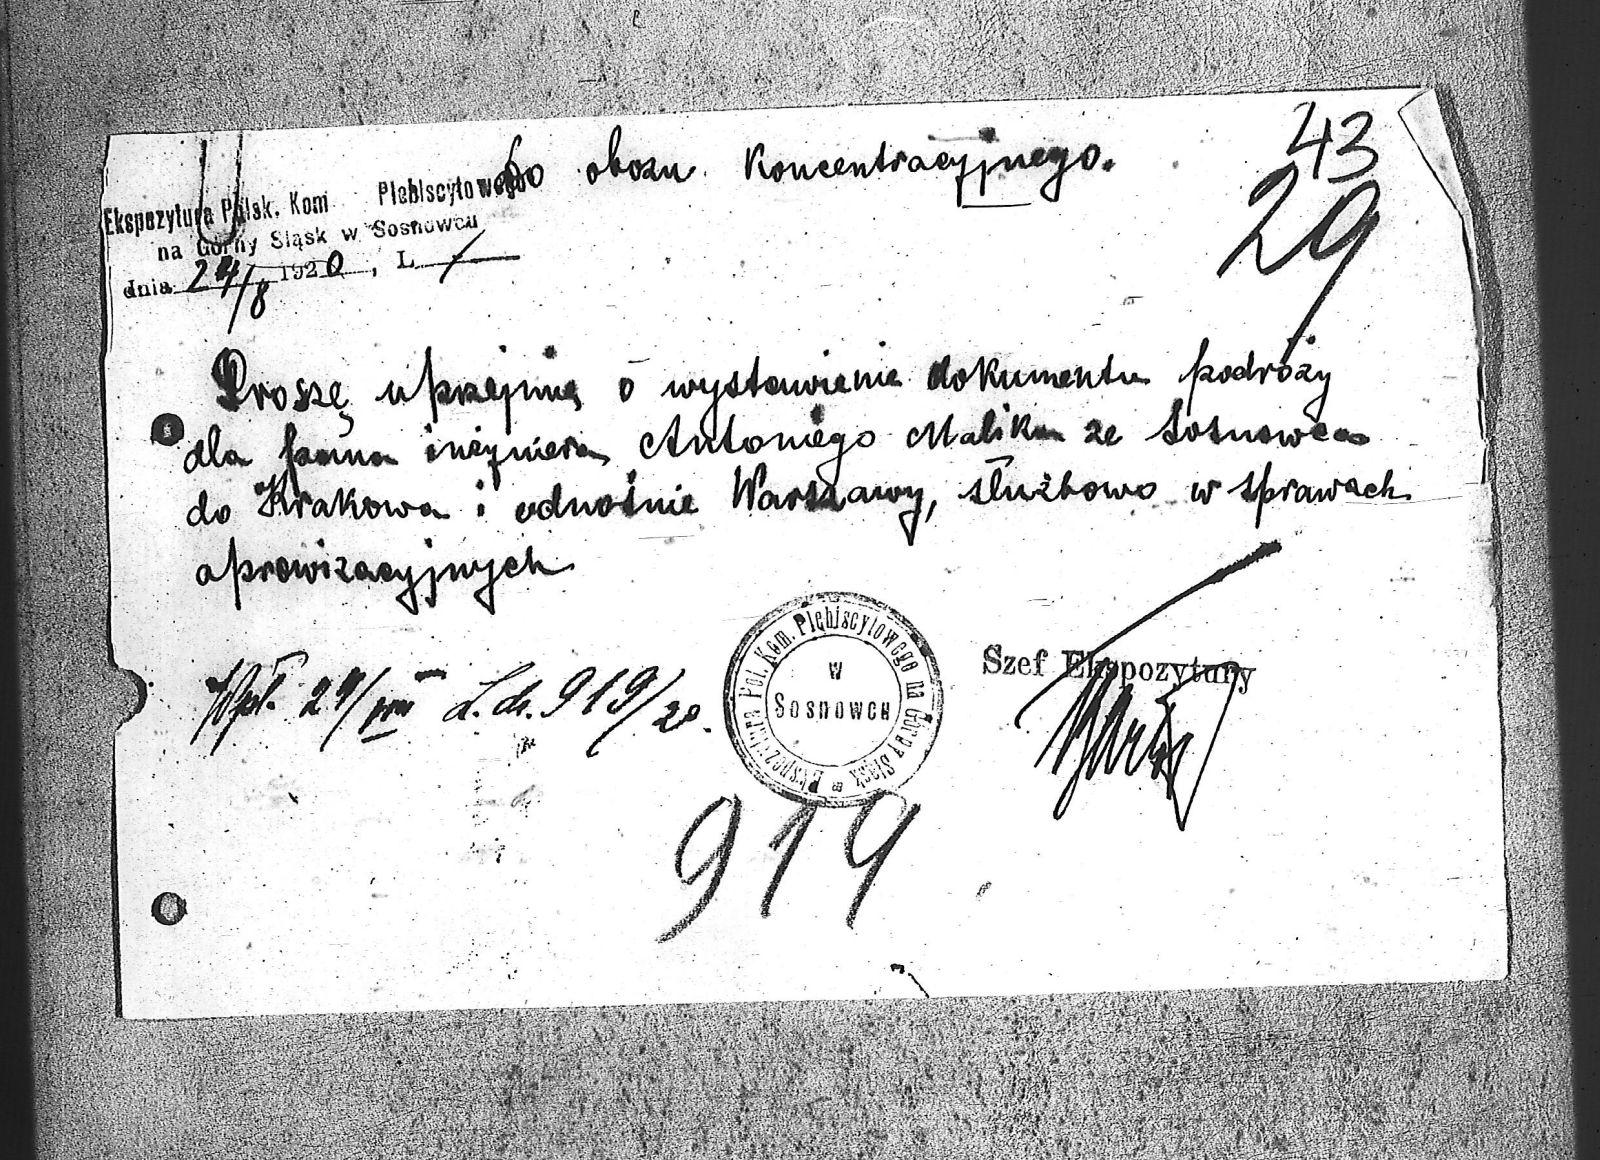 Do obozu koncentracyjnego.
43
29
Ekspozytura Polsk. Kom Plebiscytowego
na Górny Śląsk w Sosnowcu
dnia 24/8 1920, L /
Proszę uprzejmie o wystawienie dokumentu podróży
dla pana inżyniera Antoniego Malika ze Sosnowca
do Krakowa i odnośnie Warszawy, służbowo w sprawach
aprowizacyjnych
Wpł. 24/VIII L.dz. 919/20.
Ekspozytura Pol. Kom. Plebiscytowego na Górny Śląsk
w
Sosnowcu
Szef Ekspozytury
919